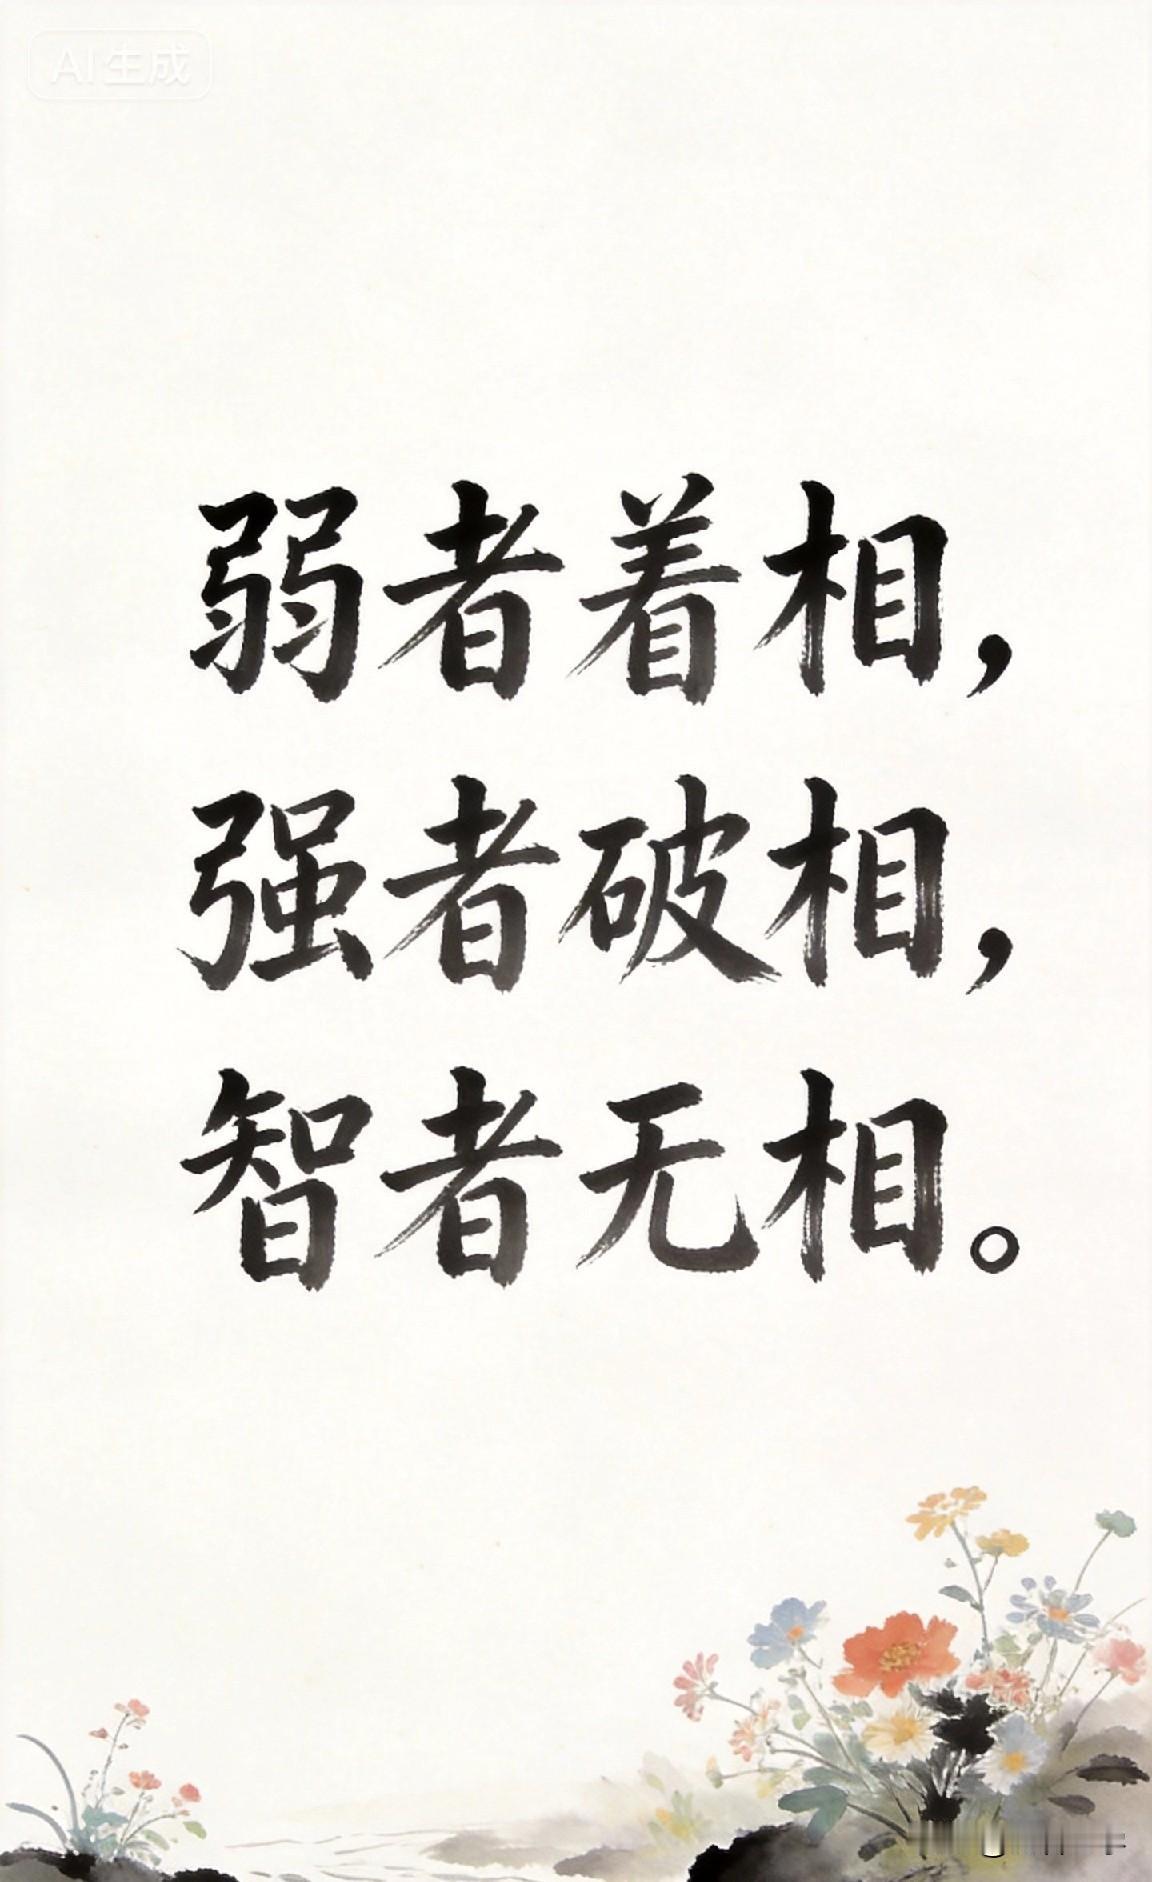 AI生成
弱者着相，
强者破相，
智者无相。